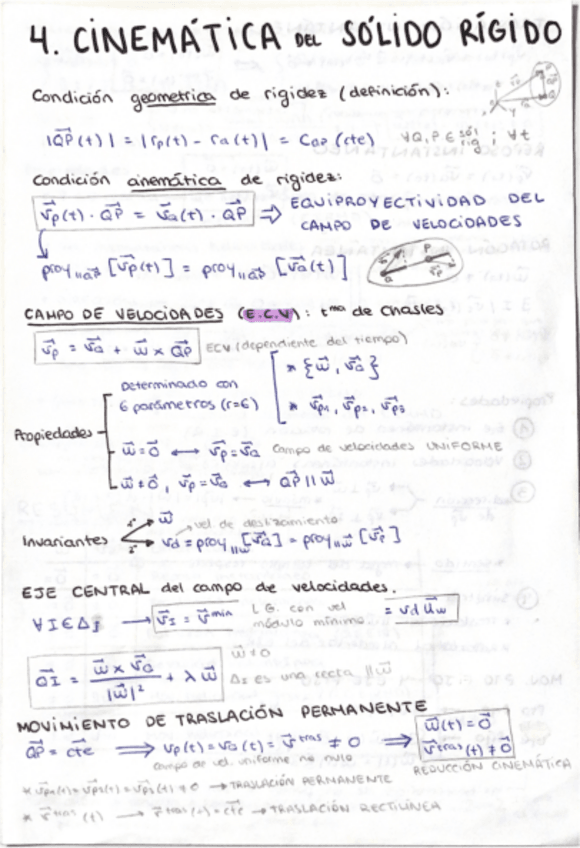 4. CINEMÁTICA DEL SÓLIDO RÍGIDO
Condición geometrica de rigidez (definición):
|QP(t)| = |rp(t) - ra(t)| = CQP (cte) ∀Q,P ∈ ; ∀t
Condición cinemática de rigidez:
vp(t) · QP = vQ(t) · QP ⇒ EQUIPROYECTIVIDAD DEL
CAMPO DE VELOCIDADES
proy∥QP [vp(t)] = proy∥QP [vQ(t)]
CAMPO DE VELOCIDADES (E.C.V): tma de Chasles
vp = vQ + ω × QP ECV (dependiente del tiempo)
Propiedades
Determinado con
6 parámetros (r=6)
* {ω, vQ}
* vp1, vp2, vp3
ω=0 ⟷ vp=vQ campo de velocidades UNIFORME
ω≠0, vp=vQ ⟷ QP∥ω
Invariantes
1º ω
2º vd = proy∥ω [vQ] = proy∥ω [vp]
vel de deslizamiento
EJE CENTRAL del campo de velocidades.
∀I∈Δ → vI = vmin L.G. con vel módulo mínimo = vd uω
QI = ω × vQ / |ω|² + λω
ω≠0
Δ es una recta ∥ω
MOVIMIENTO DE TRASLACIÓN PERMANENTE
QP = cte ⟹ vp(t) = vQ(t) = vtras ≠ 0 ⟹ ω(t) = 0
vtras(t) ≠ 0
campo de vel. uniforme no nulo
REDUCCIÓN CINEMÁTICA
* vp1(t) = vp2(t) = vp3(t) ≠ 0 → TRASLACIÓN PERMANENTE
* vtras(t) → vtras(t) = cte → TRASLACIÓN RECTILÍNEA